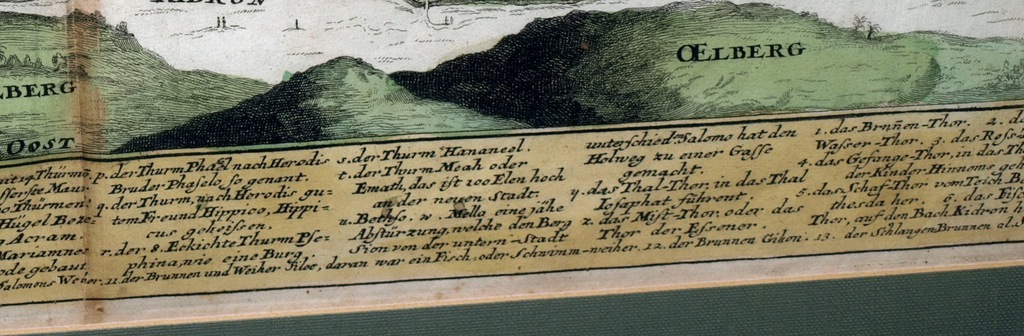 KIDRON
ŒLBERG
LBERG
OOST
p. der Thurm Phasel nach Herodis
Bruder Phaselo so genant.
q. der Thurm, nach Herodis gu-
tem Freund Hippico, Hippi-
cus geheissen.
r. der 8. Eckichte Thurm Pse-
phina, wie eine Burg.
s. der Thurm Hananeel.
t. der Thurm Meah oder
Emath, das ist 100 Elen hoch
an der neuen Stadt.
u. Bethso. w. Mello eine jähe
Abstürzung, welche den Berg
Sion von der untern-Stadt
unterschied. Salomo hat den
Holweg zu einer Gasse
gemacht.
y. das Thal-Thor, in das Thal
Josaphat führent.
z. das Mist-Thor, oder das
Thor der Essener.
1. das Brunen-Thor. 2. da
Wasser-Thor. 3. das Ross-
4. das Gefange-Thor, in das Th
der Kinder Hinnoms geh
5. das Schaf-Thor vom Teich B
thesda her. 6. das Fisc
Thor, auf den Bach Kidron h
Mauri
Thürmen
Hügel Beze-
Acram.
Mariamne
ode gebaut
Salomons Weiher. 11. der Brunnen und Weiher Siloe, daran war ein Fisch oder Schwimm-weiher. 12. der Brunnen Gihon. 13. der Schlangen Brunnen al. S